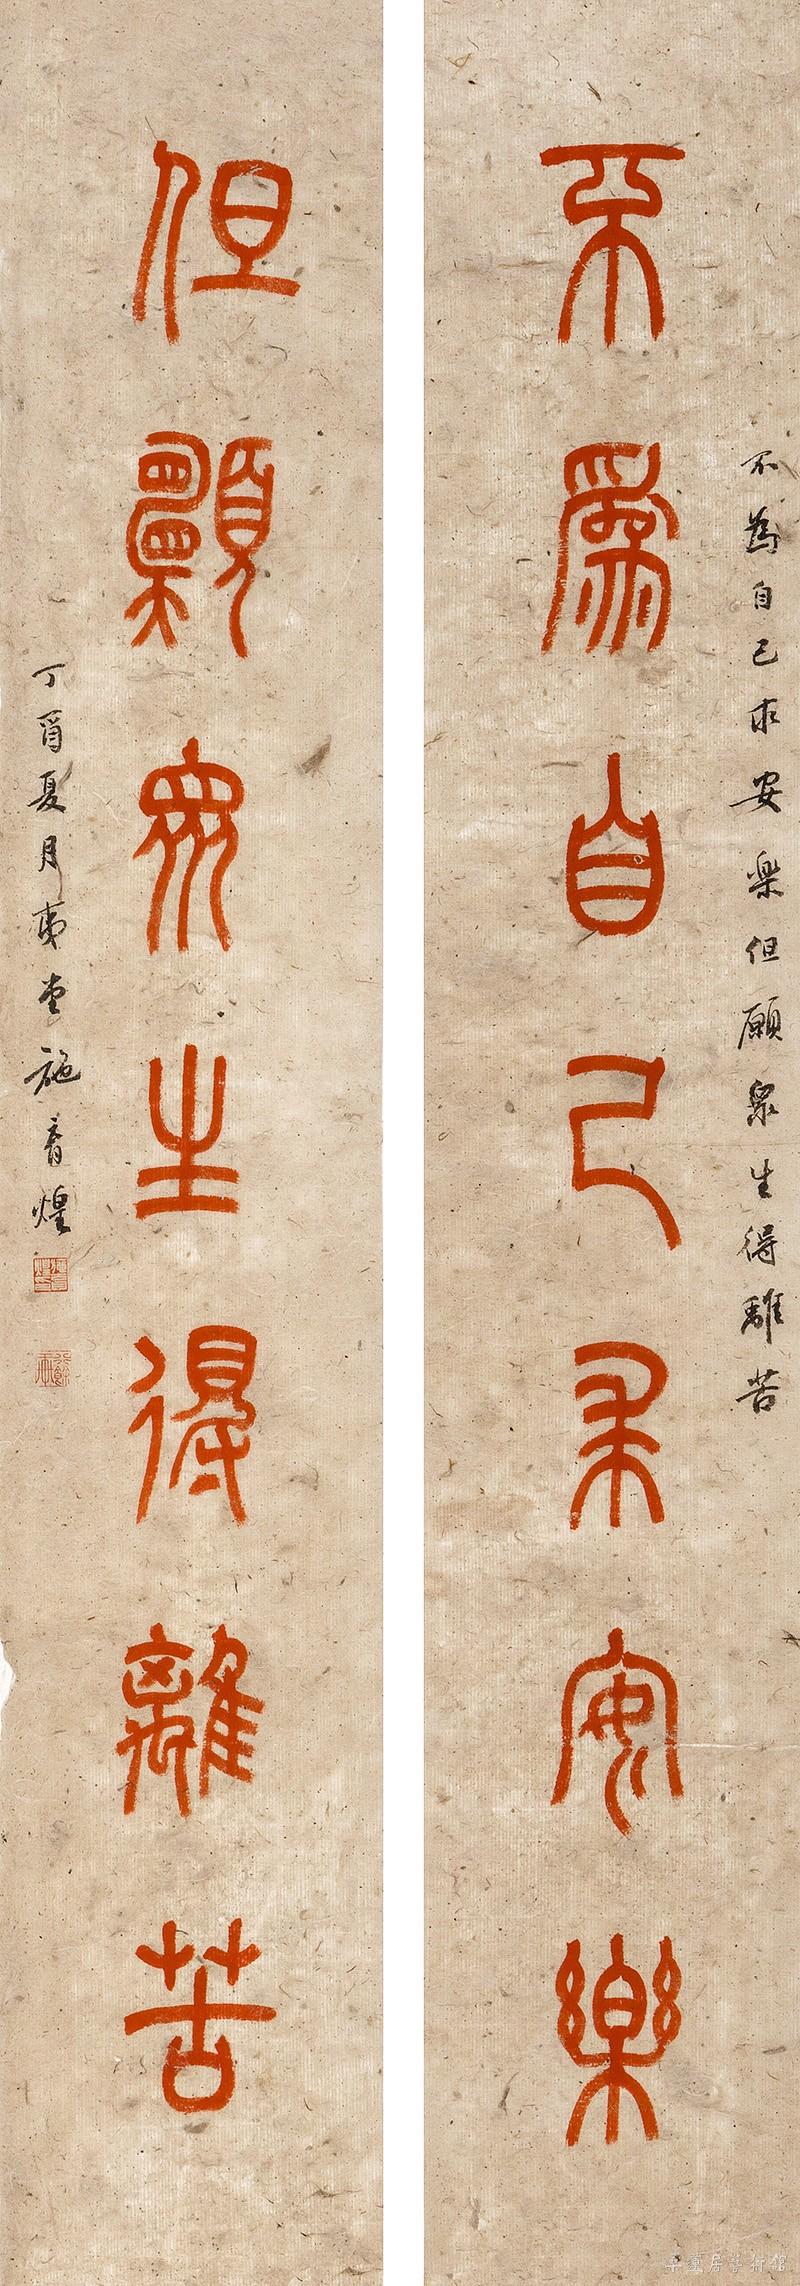 不為自己求安樂但願眾生得離苦
不爲自己求安樂
但願眾生得離苦
丁酉夏月